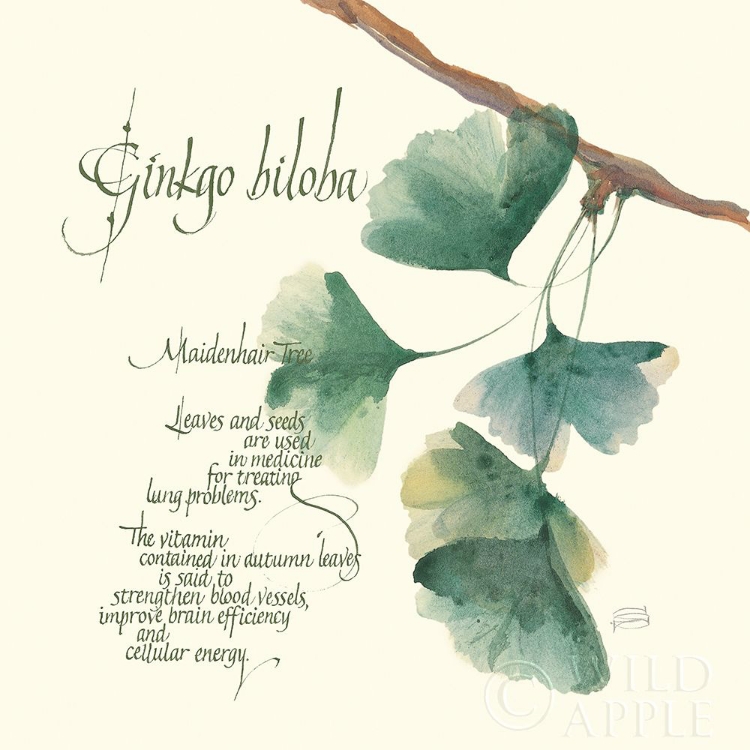 Ginkgo biloba
Maidenhair Tree
Leaves and seeds
are used
in medicine
for treating
lung problems.
The vitamin
contained in autumn leaves
is said to
strengthen blood vessels,
improve brain efficiency
and
cellular energy.
© WILD
APPLE